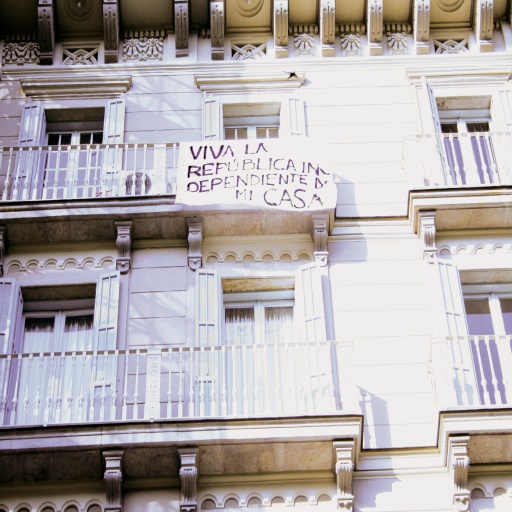 VIVA LA
REPÚBLICA IN
DEPENDIENTE D
MI CASA